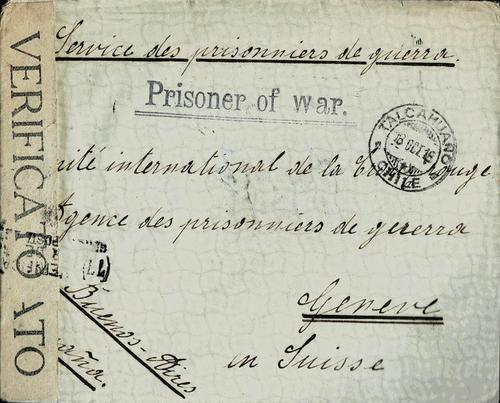 Service des prisonniers de guerra.
Prisoner of war.
TALCAHUANO
CHILE
mité international de la Croix Rouge
Agence des prisonniers de guerra
Geneve
en Suisse
Buenos-Aires
VERIFICATO
ATO